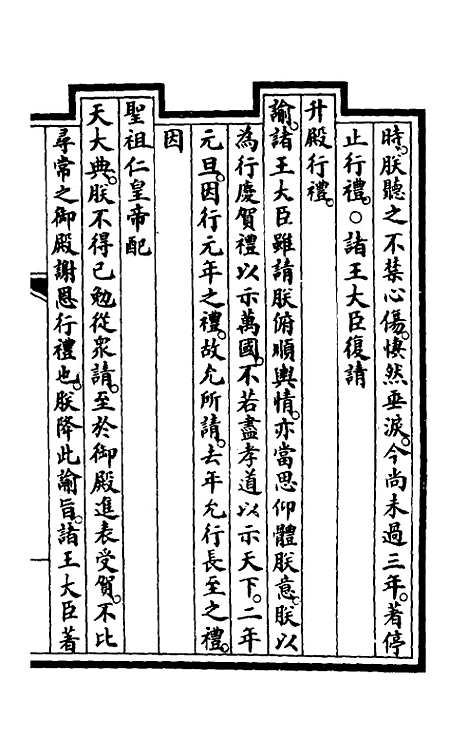 時。朕聽之不禁心傷。悽然垂淚。今尚未過三年。著停
止行禮。○諸王大臣復請
升殿行禮。
諭。諸王大臣雖請朕俯順輿情。亦當思仰體朕意。朕以
為行慶賀禮以示萬國。不若盡孝道以示天下。二年
元旦。因行元年之禮。故允所請。去年允行長至之禮。
因
聖祖仁皇帝配
天大典。朕不得已勉從眾請。至於御殿進表受賀。不比
尋常之御殿謝恩行禮也。朕降此諭旨。諸王大臣著